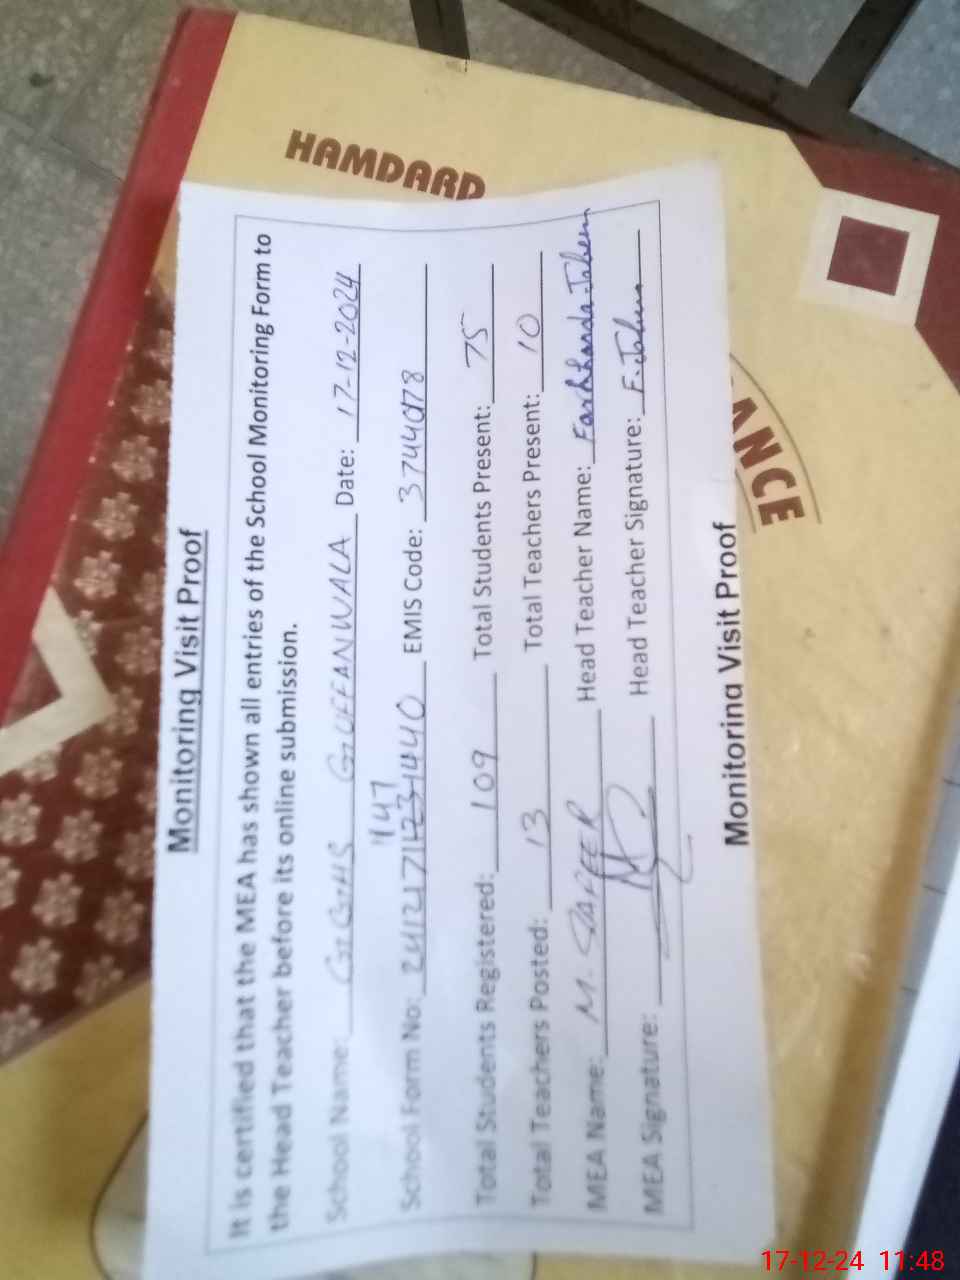 HAMDARD
ANCE
Monitoring Visit Proof
It is certified that the MEA has shown all entries of the School Monitoring Form to
the Head Teacher before its online submission.
School Name: GGHS GUFFANWALA Date: 17-12-2024
147
School Form No: EMIS Code: 37440178
Total Students Registered: 109 Total Students Present: 75
Total Teachers Posted: 13 Total Teachers Present: 10
MEA Name: M. SAFEER Head Teacher Name: Farkhanda Jabeen
MEA Signature: Head Teacher Signature: F. Jabeen
Monitoring Visit Proof
17-12-24 11:48